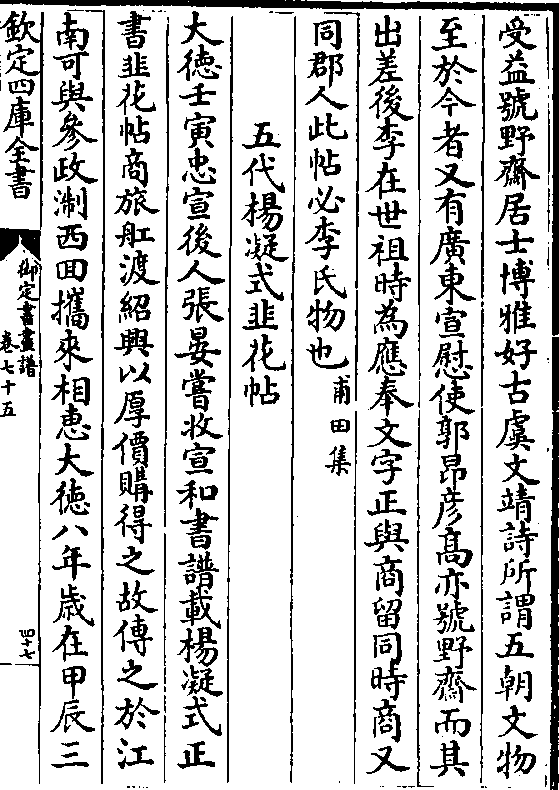 受益號野齋居士博雅好古虞文靖詩所謂五朝文物
至於今者又有廣東宣慰使郭昂彥高亦號野齋而其
出差後李在世祖時為應奉文字正與商留同時商又
同郡人此帖必李氏物也甫田集
五代楊凝式韭花帖
大德壬寅忠宣後人張晏嘗收宣和書譜載楊凝式正
書韭花帖商旅舡渡紹興以厚價購得之故傳之於江
南可與參政淛西回攜來相惠大德八年歳在甲辰三
欽定四庫全書
御定書畫譜
卷七十五
四十七